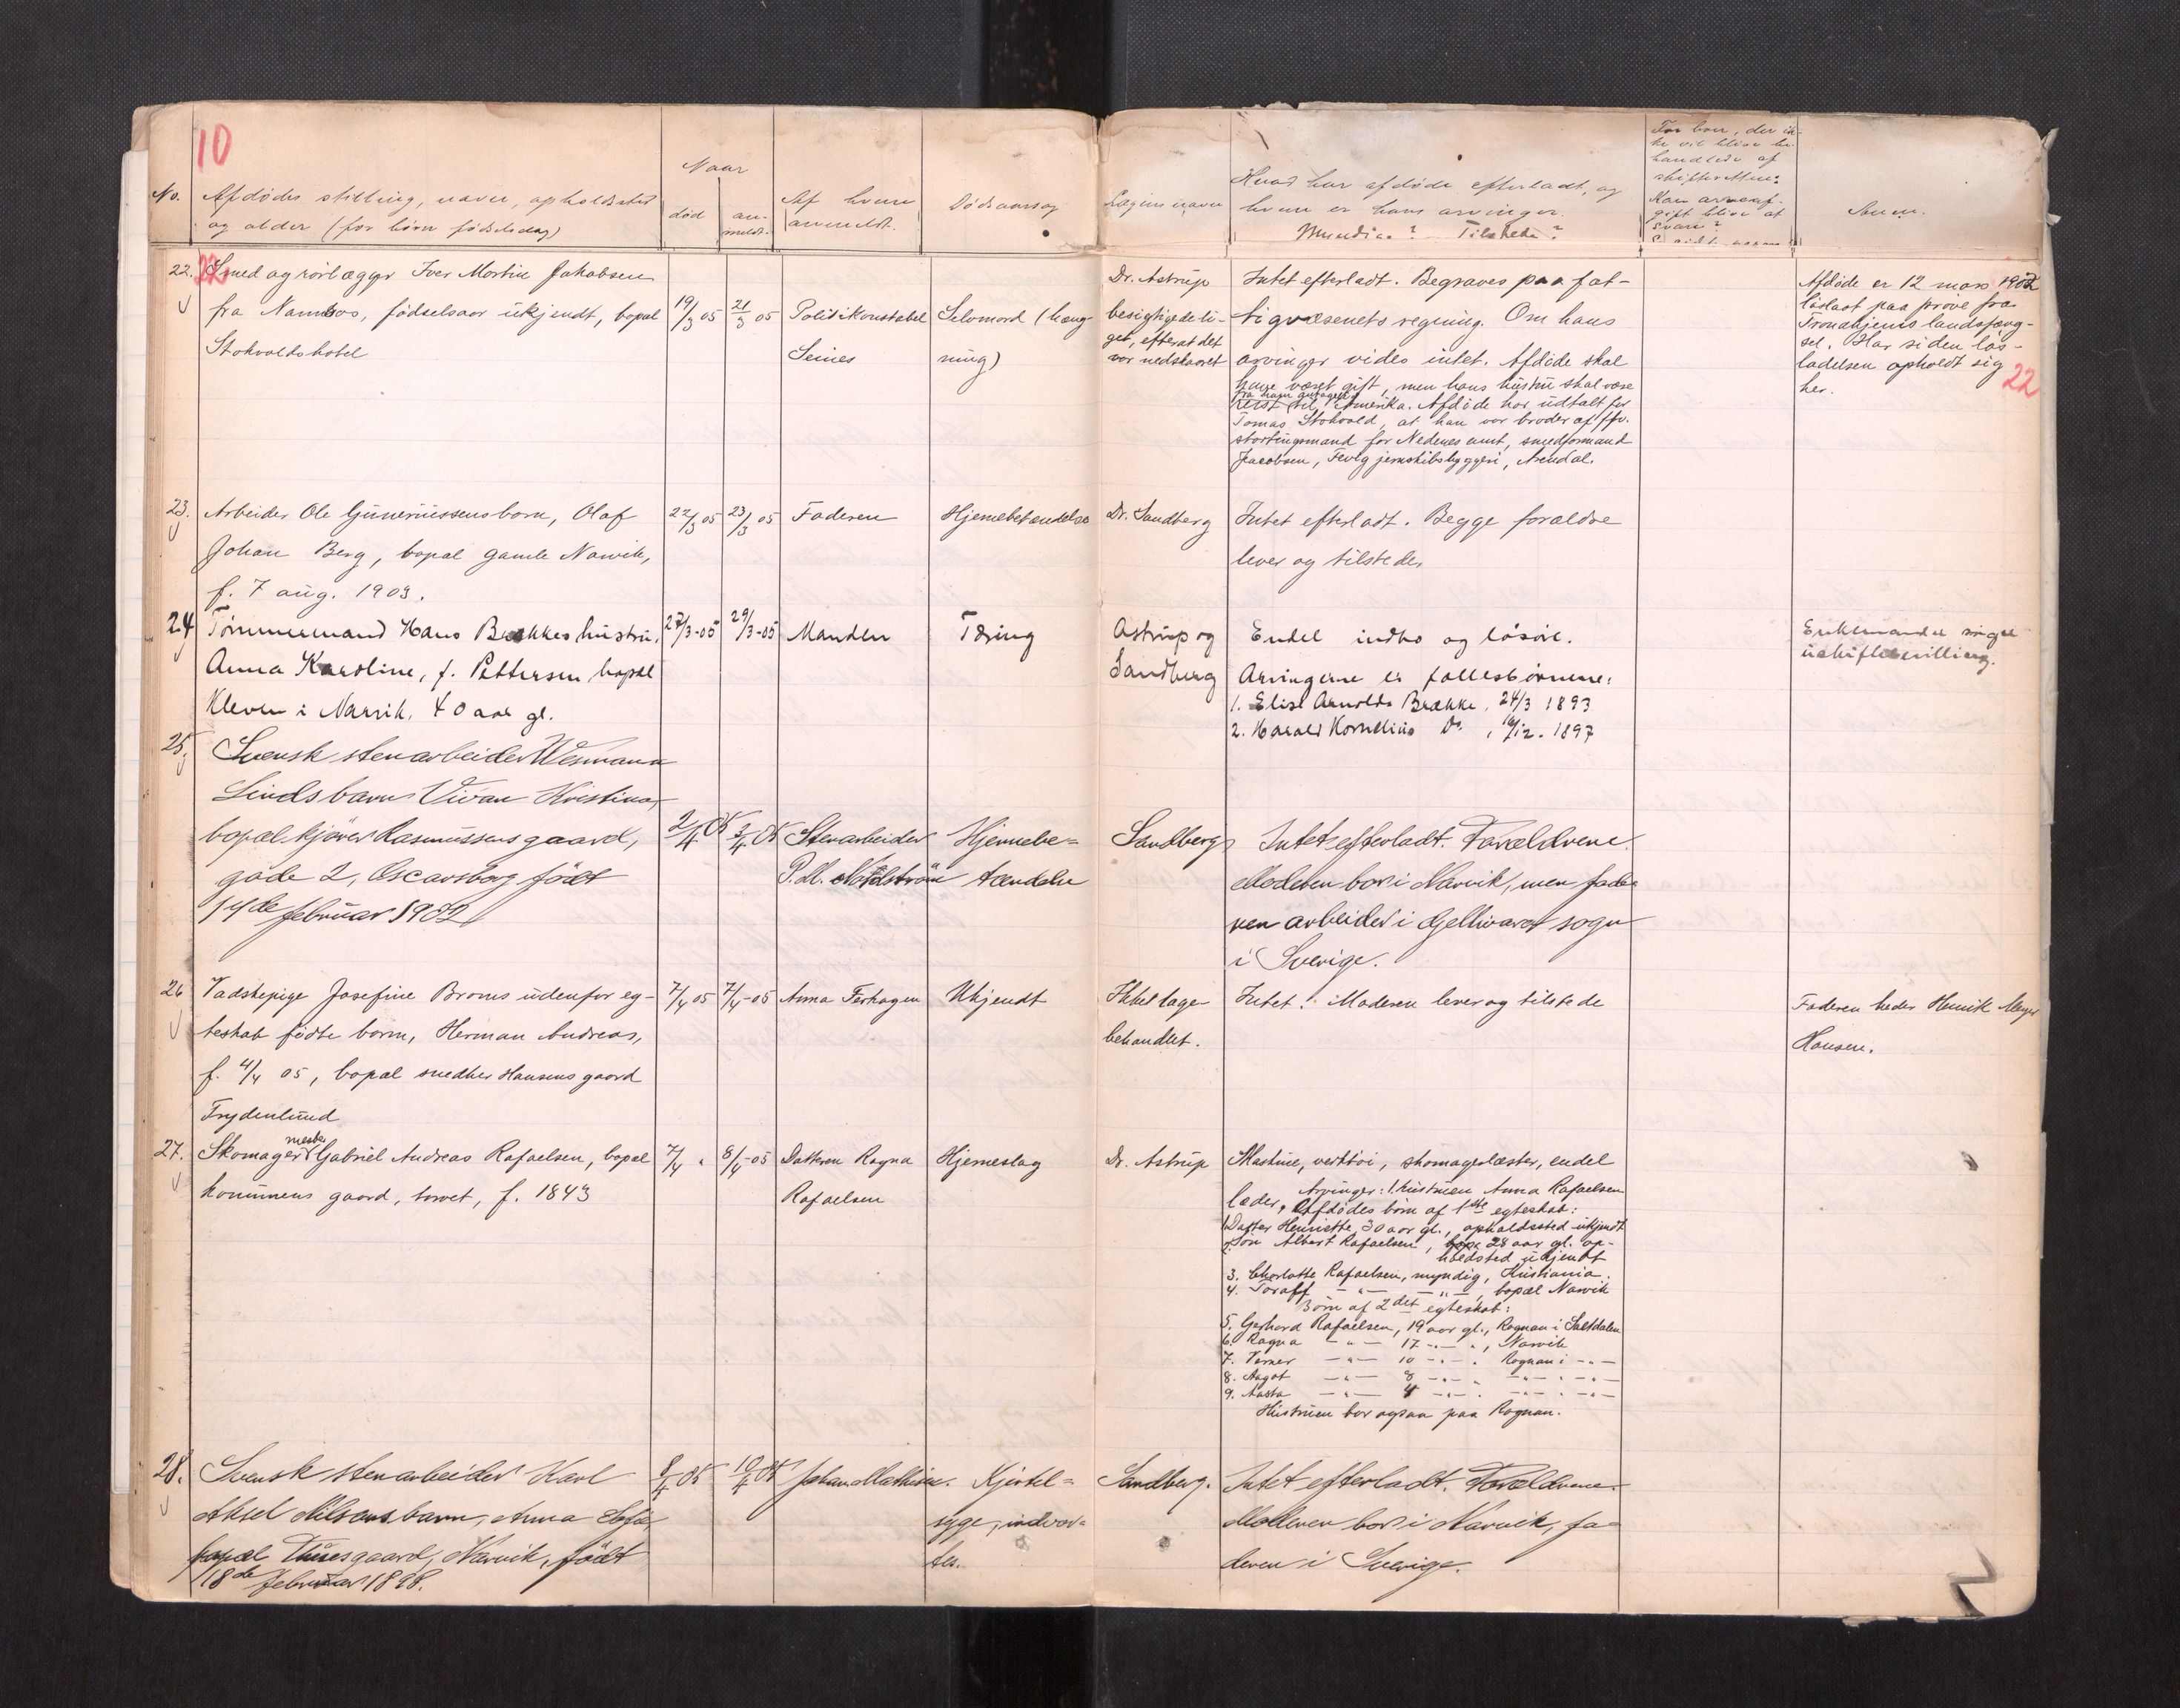 10
No.
Afdødes stilling, navn, opholdssted
og alder (for børn fødselsdag)
Naar
død
an-
meldt.
Af hvem
anmeldt.
Dødsaarsag
Lægens navn
Hvad har afdøde efterladt, og
hvem er hans arvinger.
Myndige? Tilstede?
For boer, der ik-
ke vil blive be-
handlede af
skifteretten:
Kan arveaf-
gift blive at
svare?
Anm.
22.
Smed og rørlægger Iver Martin Jakobsen
fra Namsos, fødselsaar ukjendt, bopæl
Stokvolds hotel
19/3 05
21/3 05
Politikonstabel
Seines
Selvmord (hæng-
ning)
Dr. Astrup
besigtigede li-
get, efterat det
var nedskaaret
Intet efterladt. Begraves paa fat-
tigvæsenets regning. Om hans
arvinger vides intet. Afdøde skal
have været gift, men hans hustru skal være
fra ham
reist til Amerika. Afdøde har udtalt for
Tomas Stokvold, at han var broder af fhv.
stortingsmand for Nedenes amt, smedformand
Jacobsen, Fevig jernskibsbyggeri, Arendal.
Afdøde er 12 mars 1902
løsladt paa prøve fra
Trondhjems landsfæng-
sel. Har siden løs-
ladelsen opholdt sig
her.
22
23.
Arbeider Ole Gunerussens barn, Olaf
Johan Berg, bopæl gamle Narvik,
f. 7 aug. 1903.
22/3 05
23/3 05
Faderen
Hjernebetændelse
Dr. Sandberg
Intet efterladt. Begge forældre
lever og tilstede.
24
Tømmermand Hans Brækkes hustru,
Anna Karoline, f. Pettersen, bopæl
Kleven i Narvik, 40 aar gl.
27/3-05
29/3-05
Manden
Tæring
Astrup og
Sandberg
Endel indbo og løsøre.
Arvingerne er fællesbørnene:
1. Elise Arnolda Brække, 24/3 1893
2. Harald Kornelius Do. , /12. 1897
Enkemanden søger
uskiftebevilling.
25.
Svensk stenarbeider Wesmann
Linds barn Vivan Kristina,
bopæl kjører Rasmussens gaard,
gade 2, Oscarsborg, født
14de februar 1902
2/4 05
3/4 05
Stenarbeider
P. M. Nordström
Hjernebe=
tændelse
Sandberg
Intet efterladt. Forældrene.
Moderen bor i Narvik, men fade-
ren arbeider i Gellivare sogn
i Sverige.
26
Vadskepige Josefine Broms udenfor eg-
teskab fødte barn, Herman Andreas,
f. 4/4 05, bopæl snedker Hansens gaard
Frydenlund
7/4 05
7/4-05
Anna Forhagen
Ukjendt
Ikke læge-
behandlet.
Intet. Moderen lever og tilstede
Faderen heder Henrik Meyer
Hansen.
27.
mester
Skomager Gabriel Andreas Rafaelsen, bopæl
kommunens gaard, torvet, f. 1843
7/4 "
8/4-05
Datteren Ragna
Rafaelsen
Hjerneslag
Dr. Astrup
Maskine, verktøi, skomagerlæster, endel
Arvinger: 1. hustruen Anna Rafaelsen
læder. Afdødes børn af 1ste egteskab:
1. Datter Henriette, 30 aar gl., opholdssted ukjendt
2. Søn Albert Rafaelsen, 28 aar gl. op-
holdsted ukjendt
3. Charlotte Rafaelsen, myndig, Kristiania.
4. Toralf —"— —"—, bopæl Narvik
Børn af 2det egteskab:
5. Gerhard Rafaelsen, 19 aar gl., Rognan i Saltdalen
6. Ragna —"— 17 —"—, Narvik
7. Verner —"— 10 —"— . Rognan i —"—
8. Aagot —"— 8 —"— —"— —"—
9. Aasta —"— 4 —"— —"— —"—
Hustruen bor ogsaa paa Rognan.
28.
Svensk stenarbeider Karl
Aksel Nilsens barn, Anna
bopæl Thuesgaard, Narvik, født
18de februar 1898.
8/4 05
10/4 05
Johan Mathisen.
Kjertel=
syge, indvor=
tes.
Sandberg.
Intet efterladt. Forældrene.
Moderen bor i Narvik, fa=
deren i Sverige.